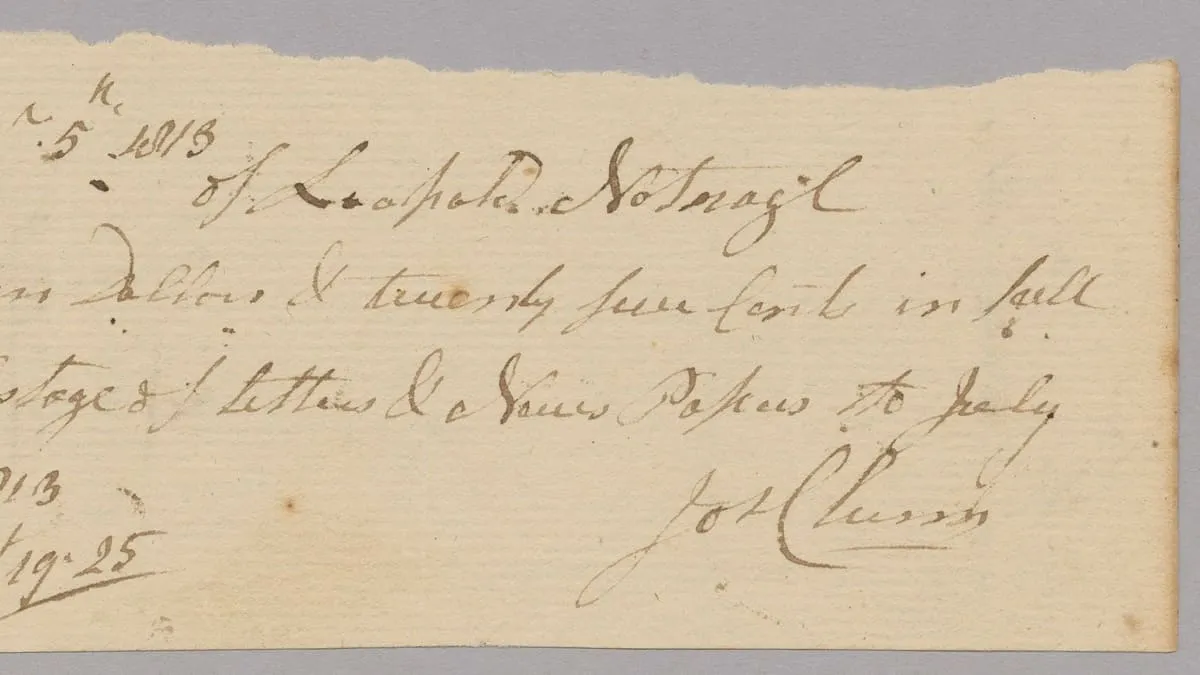 5th 1813
of Leopold Notnagel
Dollars & twenty five Cents in full
stage of letters & News Papers to July
1813
19.25
Jos Chunn